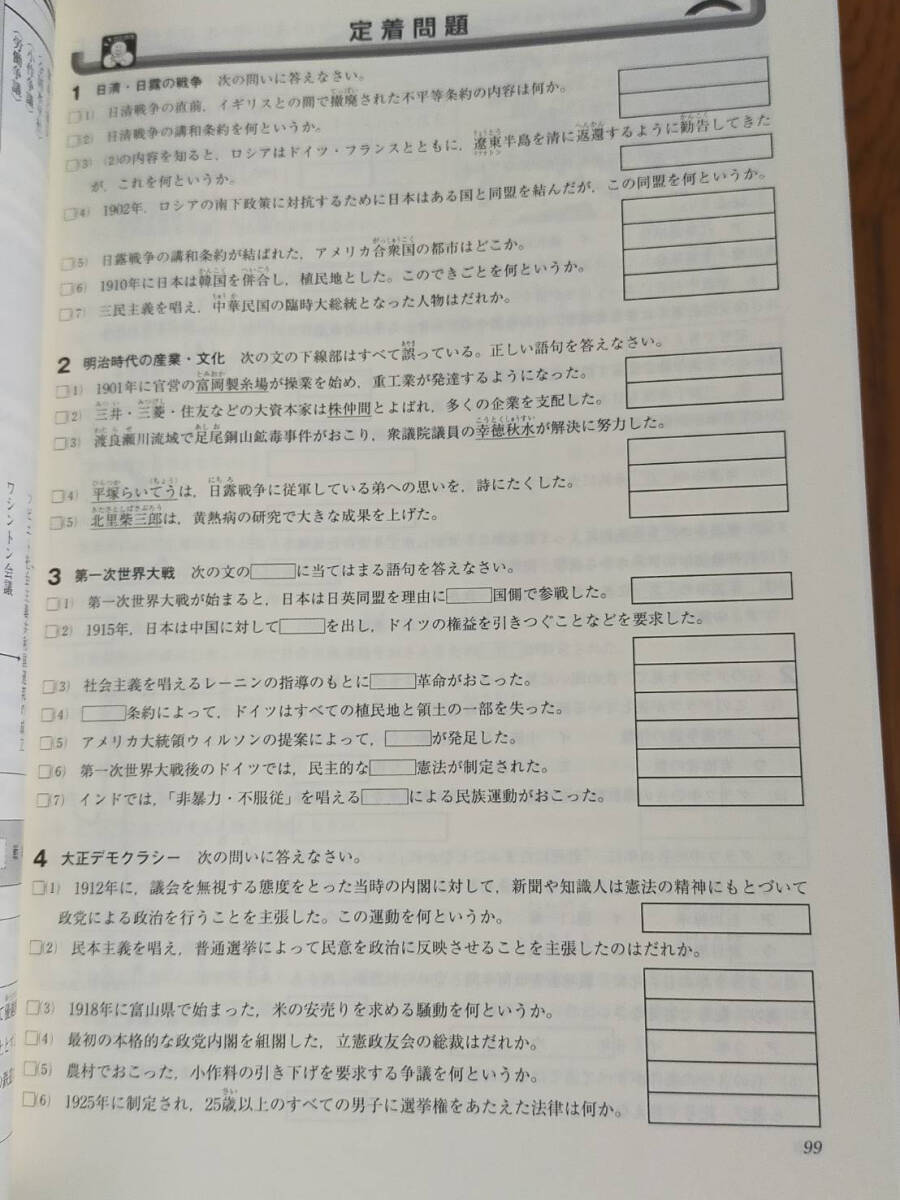 定着問題
1 日清・日露の戦争 次の問いに答えなさい。
□(1) 日清戦争の直前，イギリスとの間で撤廃された不平等条約の内容は何か。
□(2) 日清戦争の講和条約を何というか。
□(3) (2)の内容を知ると，ロシアはドイツ・フランスとともに，遼東半島を清に返還するように勧告してきた
が，これを何というか。
□(4) 1902年，ロシアの南下政策に対抗するために日本はある国と同盟を結んだが，この同盟を何というか。
□(5) 日露戦争の講和条約が結ばれた，アメリカ合衆国の都市はどこか。
□(6) 1910年に日本は韓国を併合し，植民地とした。このできごとを何というか。
□(7) 三民主義を唱え，中華民国の臨時大総統となった人物はだれか。
2 明治時代の産業・文化 次の文の下線部はすべて誤っている。正しい語句を答えなさい。
□(1) 1901年に官営の富岡製糸場が操業を始め，重工業が発達するようになった。
□(2) 三井・三菱・住友などの大資本家は株仲間とよばれ，多くの企業を支配した。
□(3) 渡良瀬川流域で足尾銅山鉱毒事件がおこり，衆議院議員の幸徳秋水が解決に努力した。
□(4) 平塚らいてうは，日露戦争に従軍している弟への思いを，詩にたくした。
□(5) 北里柴三郎は，黄熱病の研究で大きな成果を上げた。
3 第一次世界大戦 次の文の□に当てはまる語句を答えなさい。
□(1) 第一次世界大戦が始まると，日本は日英同盟を理由に□国側で参戦した。
□(2) 1915年，日本は中国に対して□を出し，ドイツの権益を引きつぐことなどを要求した。
□(3) 社会主義を唱えるレーニンの指導のもとに□革命がおこった。
□(4) □条約によって，ドイツはすべての植民地と領土の一部を失った。
□(5) アメリカ大統領ウィルソンの提案によって，□が発足した。
□(6) 第一次世界大戦後のドイツでは，民主的な□憲法が制定された。
□(7) インドでは，「非暴力・不服従」を唱える□による民族運動がおこった。
4 大正デモクラシー 次の問いに答えなさい。
□(1) 1912年に，議会を無視する態度をとった当時の内閣に対して，新聞や知識人は憲法の精神にもとづいて
政党による政治を行うことを主張した。この運動を何というか。
□(2) 民本主義を唱え，普通選挙によって民意を政治に反映させることを主張したのはだれか。
□(3) 1918年に富山県で始まった，米の安売りを求める騒動を何というか。
□(4) 最初の本格的な政党内閣を組閣した，立憲政友会の総裁はだれか。
□(5) 農村でおこった，小作料の引き下げを要求する争議を何というか。
□(6) 1925年に制定され，25歳以上のすべての男子に選挙権をあたえた法律は何か。
99
(労働争議)
(小作争議)
ワシントン会議